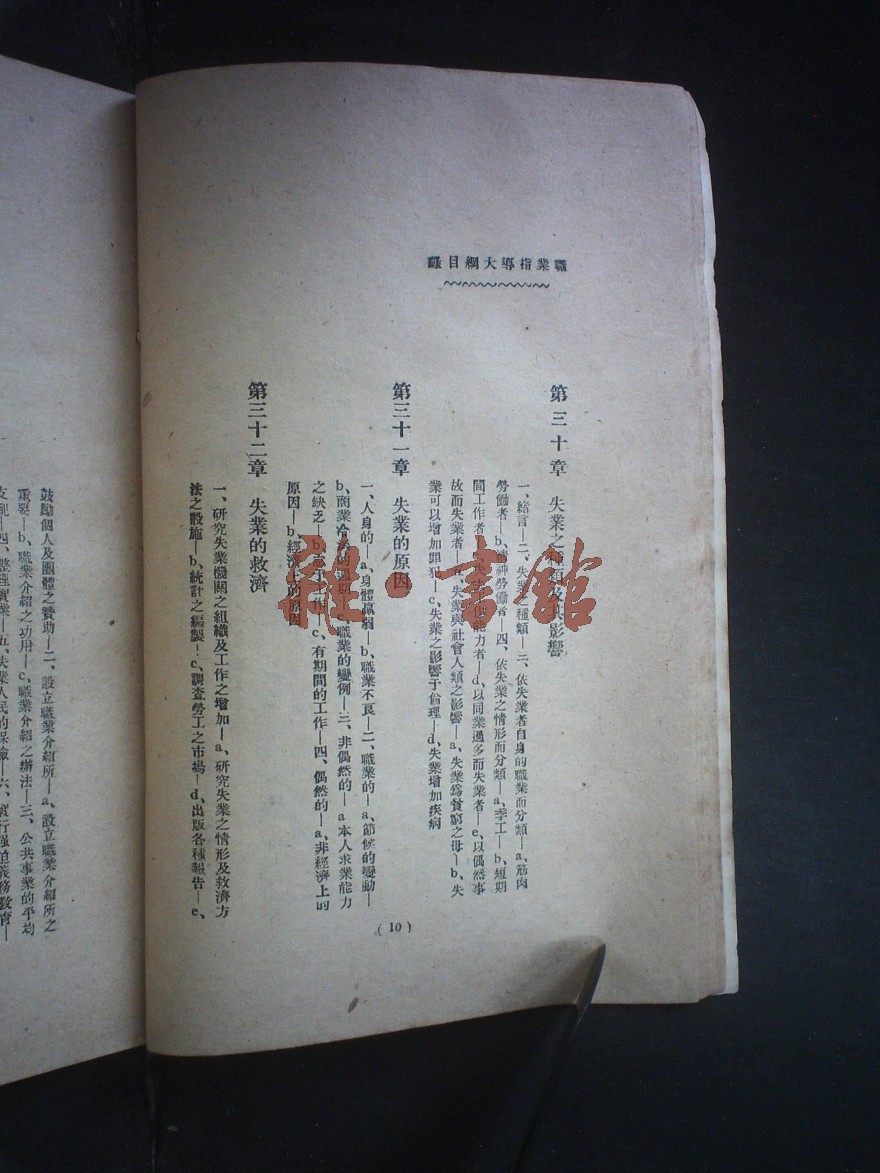 職業指導大綱目錄
第三十章 失業之種類及其影響
一、緒言—二、失業之種類—三、依失業者自身的職業而分類—a、筋肉
勞働者—b、精神勞働者—四、依失業之情形而分類—a、季工—b、短期
間工作者—失去工作能力者—d、以同業過多而失業者—e、以偶然事
故而失業者—五、失業與社會人類之影響—a、失業為貧窮之母—b、失
業可以增加罪犯—c、失業之影響于倫理—d、失業增加疾病
第三十一章 失業的原因
一、人身的—a、身體羸弱—b、職業不良—二、職業的—a、節候的變動—
b、商業冷熱的週期—c、職業的變例—三、非偶然的—a本人求業能力
之缺乏—b、工作—c、有期間的工作—四、偶然的—a、非經濟上的
原因—b、經濟上的原因
第三十二章 失業的救濟
一、研究失業機關之組織及工作之增加—a、研究失業之情形及救濟方
法之設施—b、統計之編製—c、調查勞工之市場—d、出版各種報告—e、
(10)
鼓勵個人及團體之贊助—二、設立職業介紹所—a、設立職業介紹所之
重要—b、職業介紹之功用—c、職業介紹之辦法—三、公共事業的平均
支配—四、整理實業—五、失業人民的保險—六、實行强迫義務教育—
雜·書館